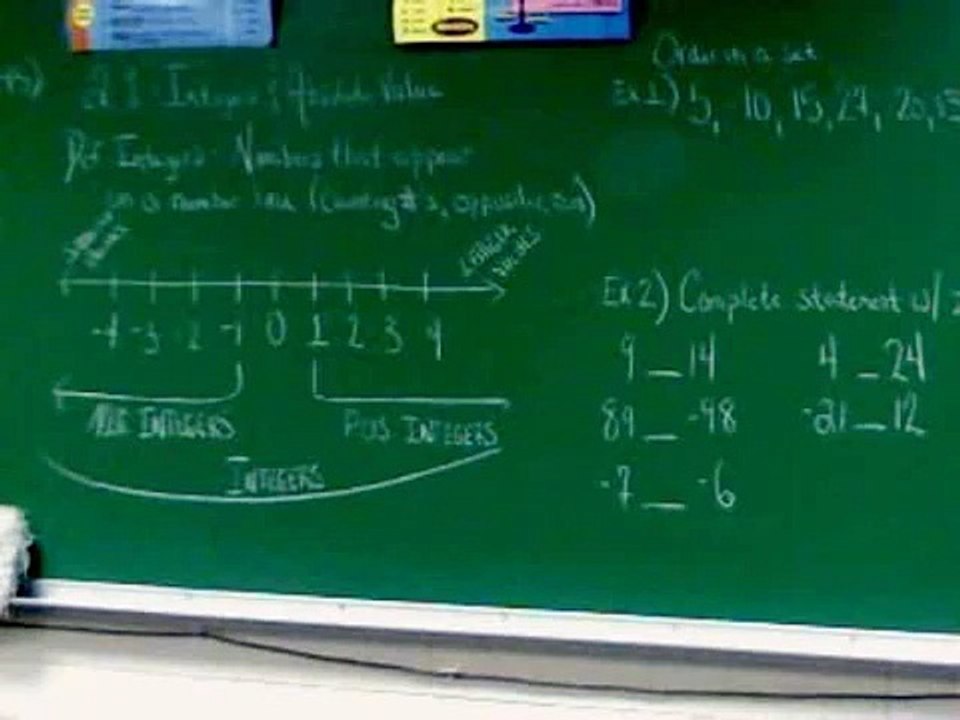 Integers & Absolute Value
Def Integers - Numbers that appear
on a number line (counting #'s, opposites,
LARGER
VALUES
-4 -3 -2 -1 0 1 2 3 4
INTEGERS
POS INTEGERS
INTEGERS
Order in a set
Ex 1) 5, -10, 15, 27, 20,
Ex 2) Complete statement w/
9 _ 14 4 _ 24
89 _ -98 -21 _ 12
-7 _ -6